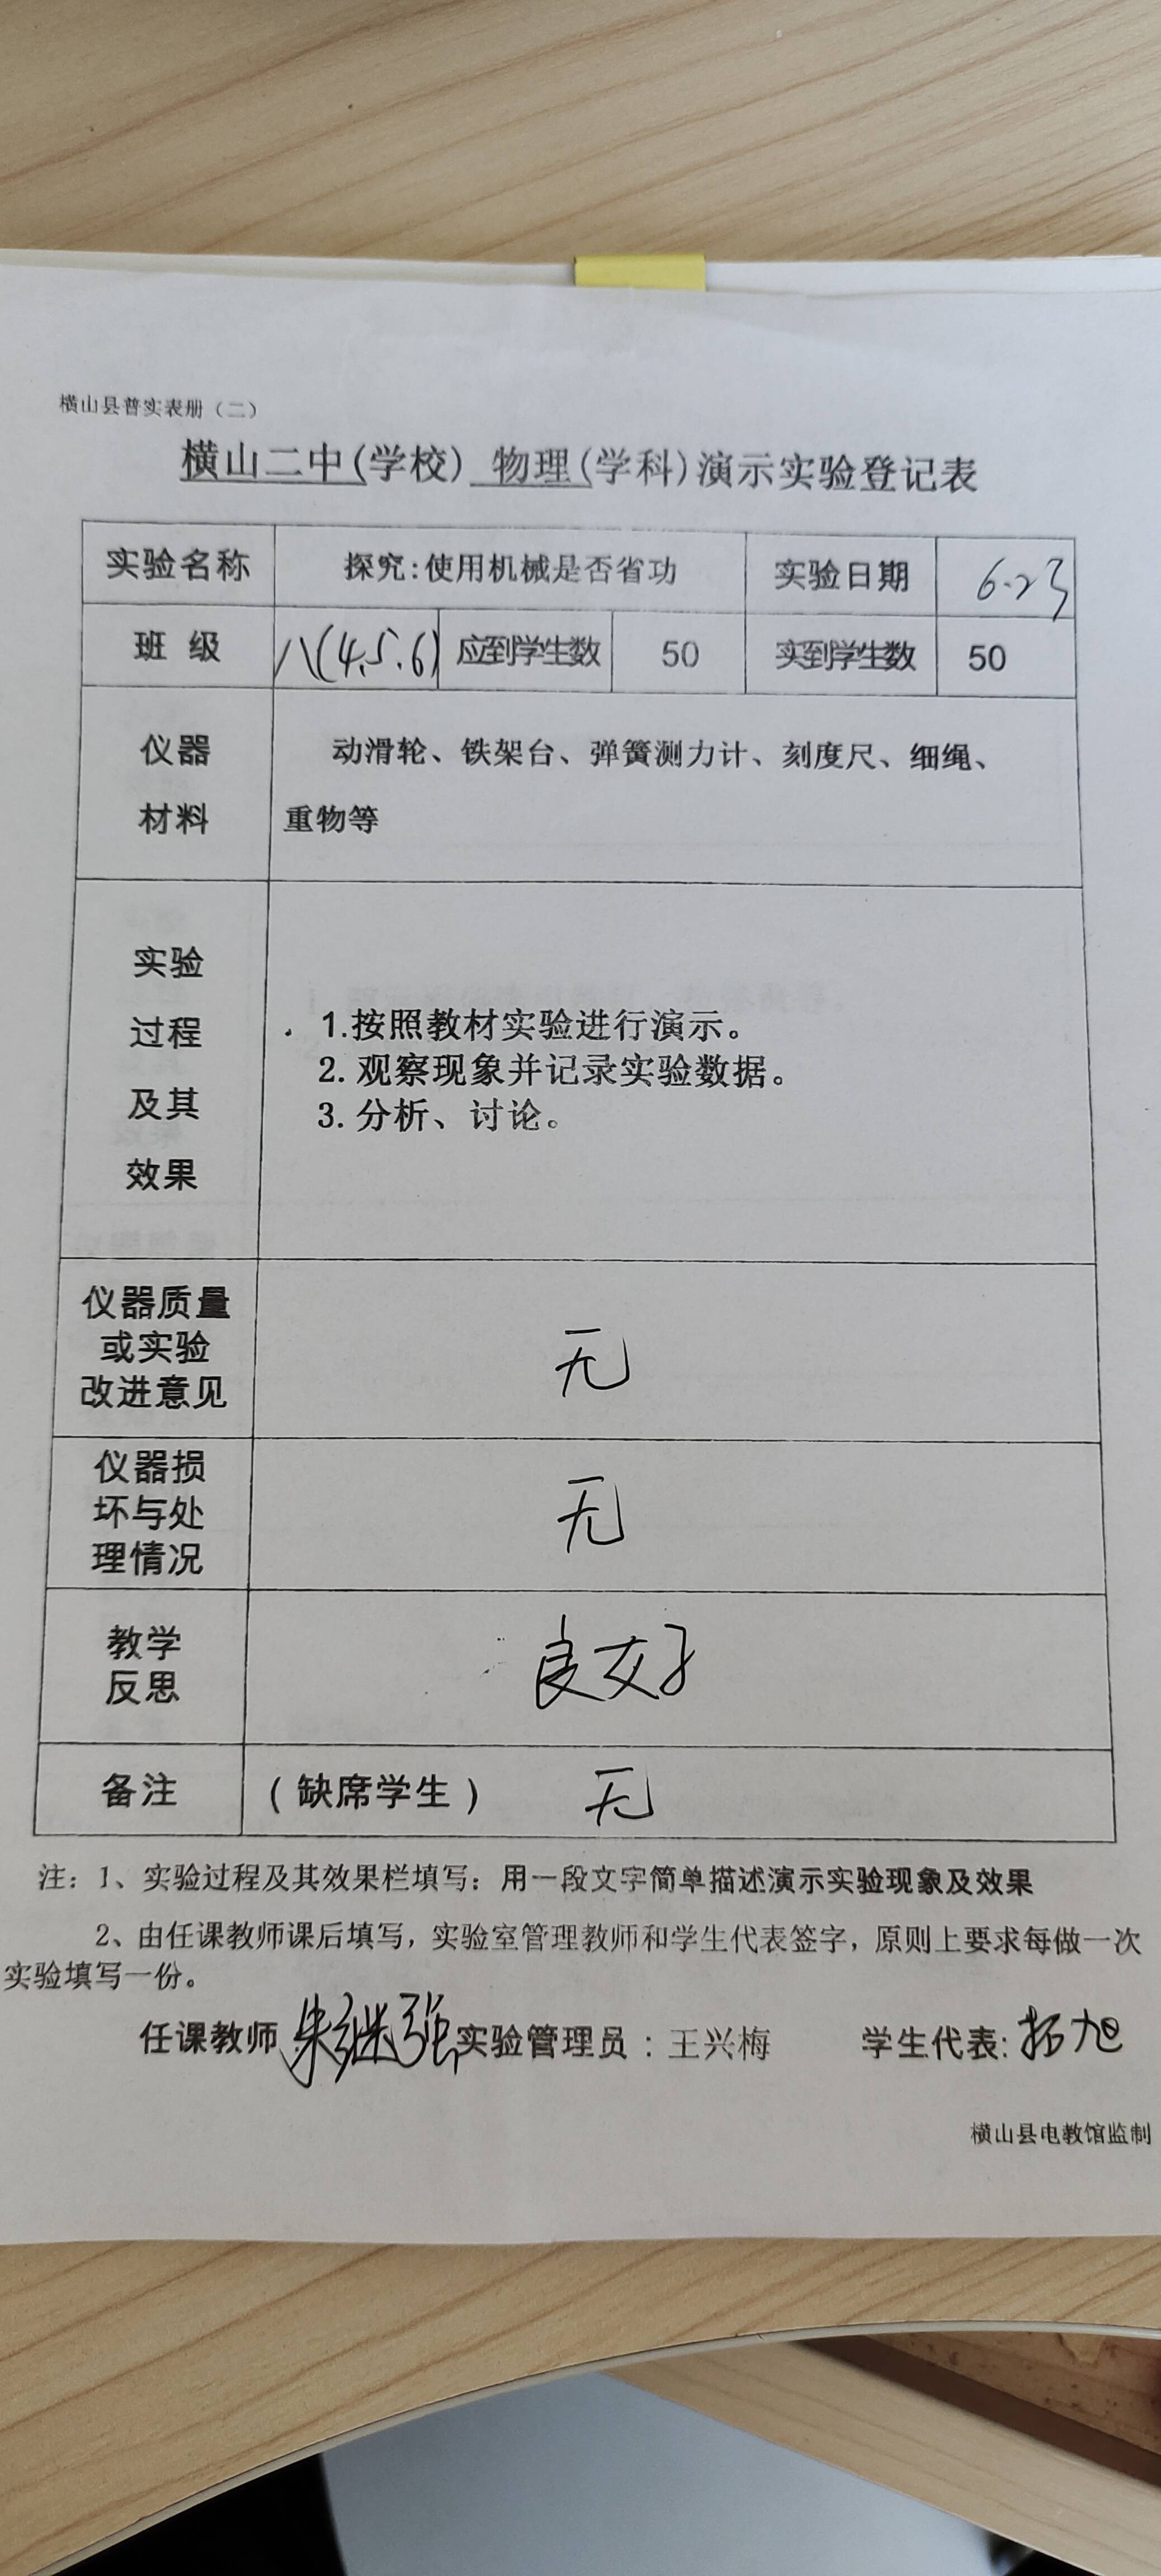 横山县普实表册（二）
横山二中(学校) 物理(学科)演示实验登记表
实验名称 探究:使用机械是否省功 实验日期 6.23
班 级 八(4.5.6) 应到学生数 50 实到学生数 50
仪器
材料
动滑轮、铁架台、弹簧测力计、刻度尺、细绳、
重物等
实验
过程
及其
效果
1.按照教材实验进行演示。
2.观察现象并记录实验数据。
3.分析、讨论。
仪器质量
或实验
改进意见
无
仪器损
坏与处
理情况
无
教学
反思
良好
备注 (缺席学生) 无
注：1、实验过程及其效果栏填写：用一段文字简单描述演示实验现象及效果
2、由任课教师课后填写，实验室管理教师和学生代表签字，原则上要求每做一次
实验填写一份。
任课教师 朱继强 实验管理员：王兴梅 学生代表: 拓旭
横山县电教馆监制